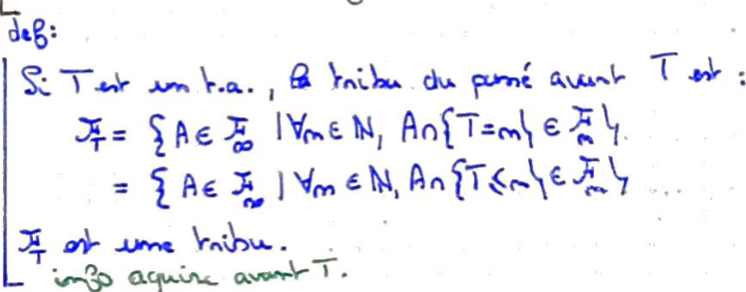 def:
Si T est un t.a., la tribu du passé avant T est :
F_T = {A ∈ F_∞ | ∀n ∈ N, A∩{T=n} ∈ F_n}.
= {A ∈ F_∞ | ∀n ∈ N, A∩{T≤n} ∈ F_n}
F_T est une tribu.
info aquise avant T.